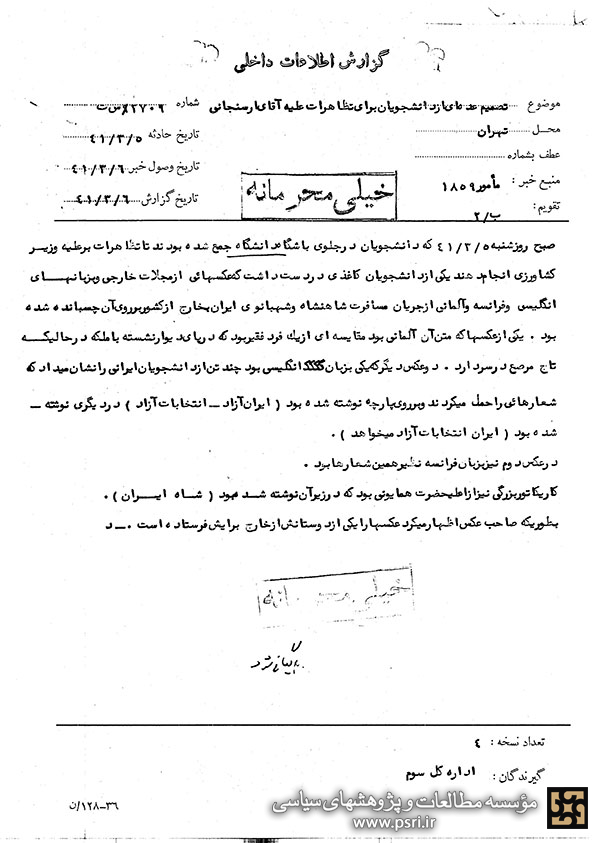 گزارش اطلاعات داخلی
موضوع تصمیم عده‌ای از دانشجویان برای تظاهرات علیه آقای ارسنجانی
شماره ۱۲۷۰۶/س‌ت
محل تهران
تاریخ حادثه ۴۱/۳/۵
عطف بشماره
تاریخ وصول خبر ۴۱/۳/۶
منبع خبر : مأمور ۱۸۵۹
تاریخ گزارش ۴۱/۳/۶
تقویم : ب/۲
خیلی محرمانه
صبح روزشنبه ۴۱/۳/۵ که دانشجویان در جلوی باشگاه دانشگاه جمع شده بودند تا تظاهرات بر علیه وزیر
کشاورزی انجام دهند یکی از دانشجویان کاغذی در دست داشت که عکسهائی از مجلات خارجی و بزبانهای
انگلیسی و فرانسه و آلمانی از جریان مسافرت شاهنشاه و شهبانوی ایران بخارج از کشور بروی آن چسبانده شده
بود . یکی از عکسها که متن آن آلمانی بود مقایسه ای از یک فرد فقیر بود که در پای دیوار نشسته با ملکه در حالیکه
تاج مرصع در سر دارد . دو عکس دیگر که یکی بزبان انگلیسی بود چند تن از دانشجویان ایرانی را نشان میداد که
شعارهائی را حمل میکردند و بر روی پارچه نوشته شده بود ( ایران آزاد ــ انتخابات آزاد ) در دیگری نوشته ــ
شده بود ( ایران انتخابات آزاد میخواهد ) .
در عکس دوم نیز بزبان فرانسه نظیر همین شعارها بود .
کاریکاتور بزرگی نیز از اعلیحضرت همایونی بود که در زیر آن نوشته شده بود ( شاه ایران ) .
بطوریکه صاحب عکس اظهار میکرد عکسها را یکی از دوستانش از خارج برایش فرستاده است . ــ د
خیلی محرمانه
بایگانی شود
تعداد نسخه : ۴
گیرندگان : اداره کل سوم
۳۶-۱۲۸/ن
مؤسسه مطالعات و پژوهشهای سیاسی
www.psri.ir